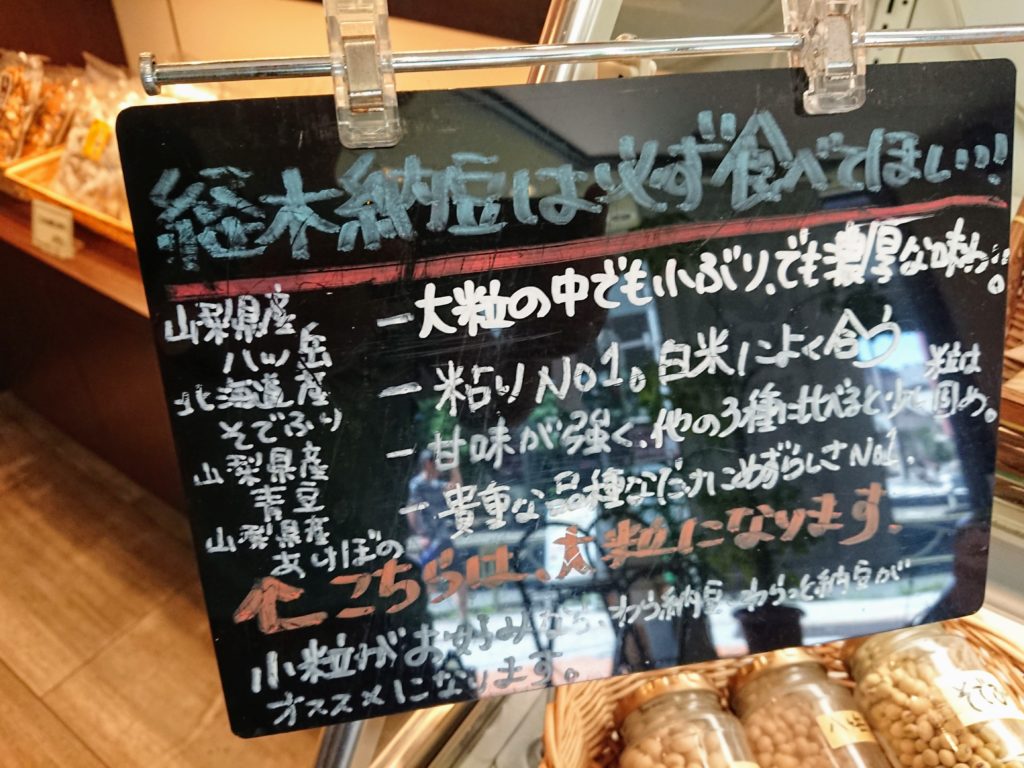 経木納豆は必ず食べてほしい!!
山梨県産
八ヶ岳
ー大粒の中でも小ぶり、でも濃厚な味…。
北海道産
そでふり
ー粘りNo1。白米によく合う
山梨県産
青豆
ー甘味が強く、他の3種に比べると少し固め。
粒は
山梨県産
あけぼの
ー貴重な品種なだけにめずらしさNo1.
↑こちらは、大粒になります.
小粒がお好みなら、わら納豆、わらっと納豆が
オススメになります。